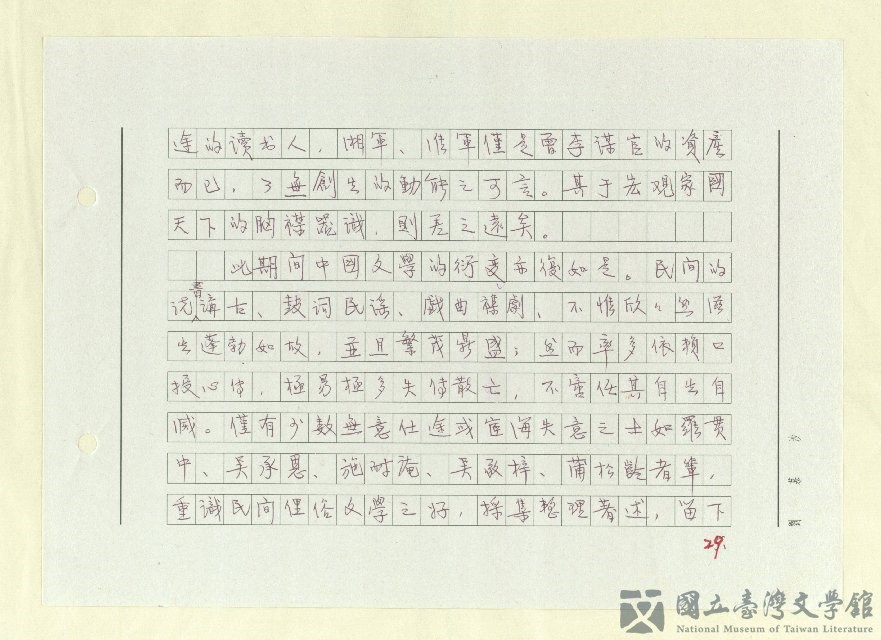 途的读书人，湘軍、淮軍僅是曾李謀官的資產
而已，了無創生的動能之可言。其于宏观家國
天下的胸襟器識，則差之遠矣。
此期间中國文學的衍变亦復如是。民间的
说書講古、鼓词民谣、戯曲雜劇、不惟欣欣然滋
生蓬勃如故，並且繁茂鼎盛；然而率多依賴口
授心传，極易極多失传散亡，不啻任其自生自
滅。僅有少数無意仕途或宦海失意之士如羅贯
中、吴承恩、施耐庵、吴敬梓、蒲松龄者輩，
重識民间俚俗文學之好，採集整理著述，留下
29.
國立臺灣文學館
National Museum of Taiwan Literature